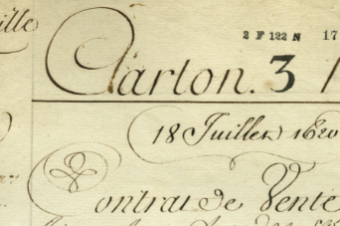 ille
2 F 122 N 17
Carton. 3
18 Juillet 1620
Contrat de Vente